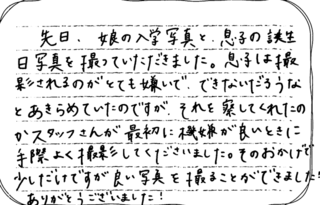 先日、娘の入学写真と、息子の誕生
日写真を撮っていただきました。息子は撮
影されるのがとても嫌いで、できないだろうな
とあきらめていたのですが、それを察してくれたの
かスタッフさんが最初に機嫌が良いときに
手際よく撮影してくださいました。そのおかげで
少しだけですが良い写真を撮ることができました!
ありがとうございました!